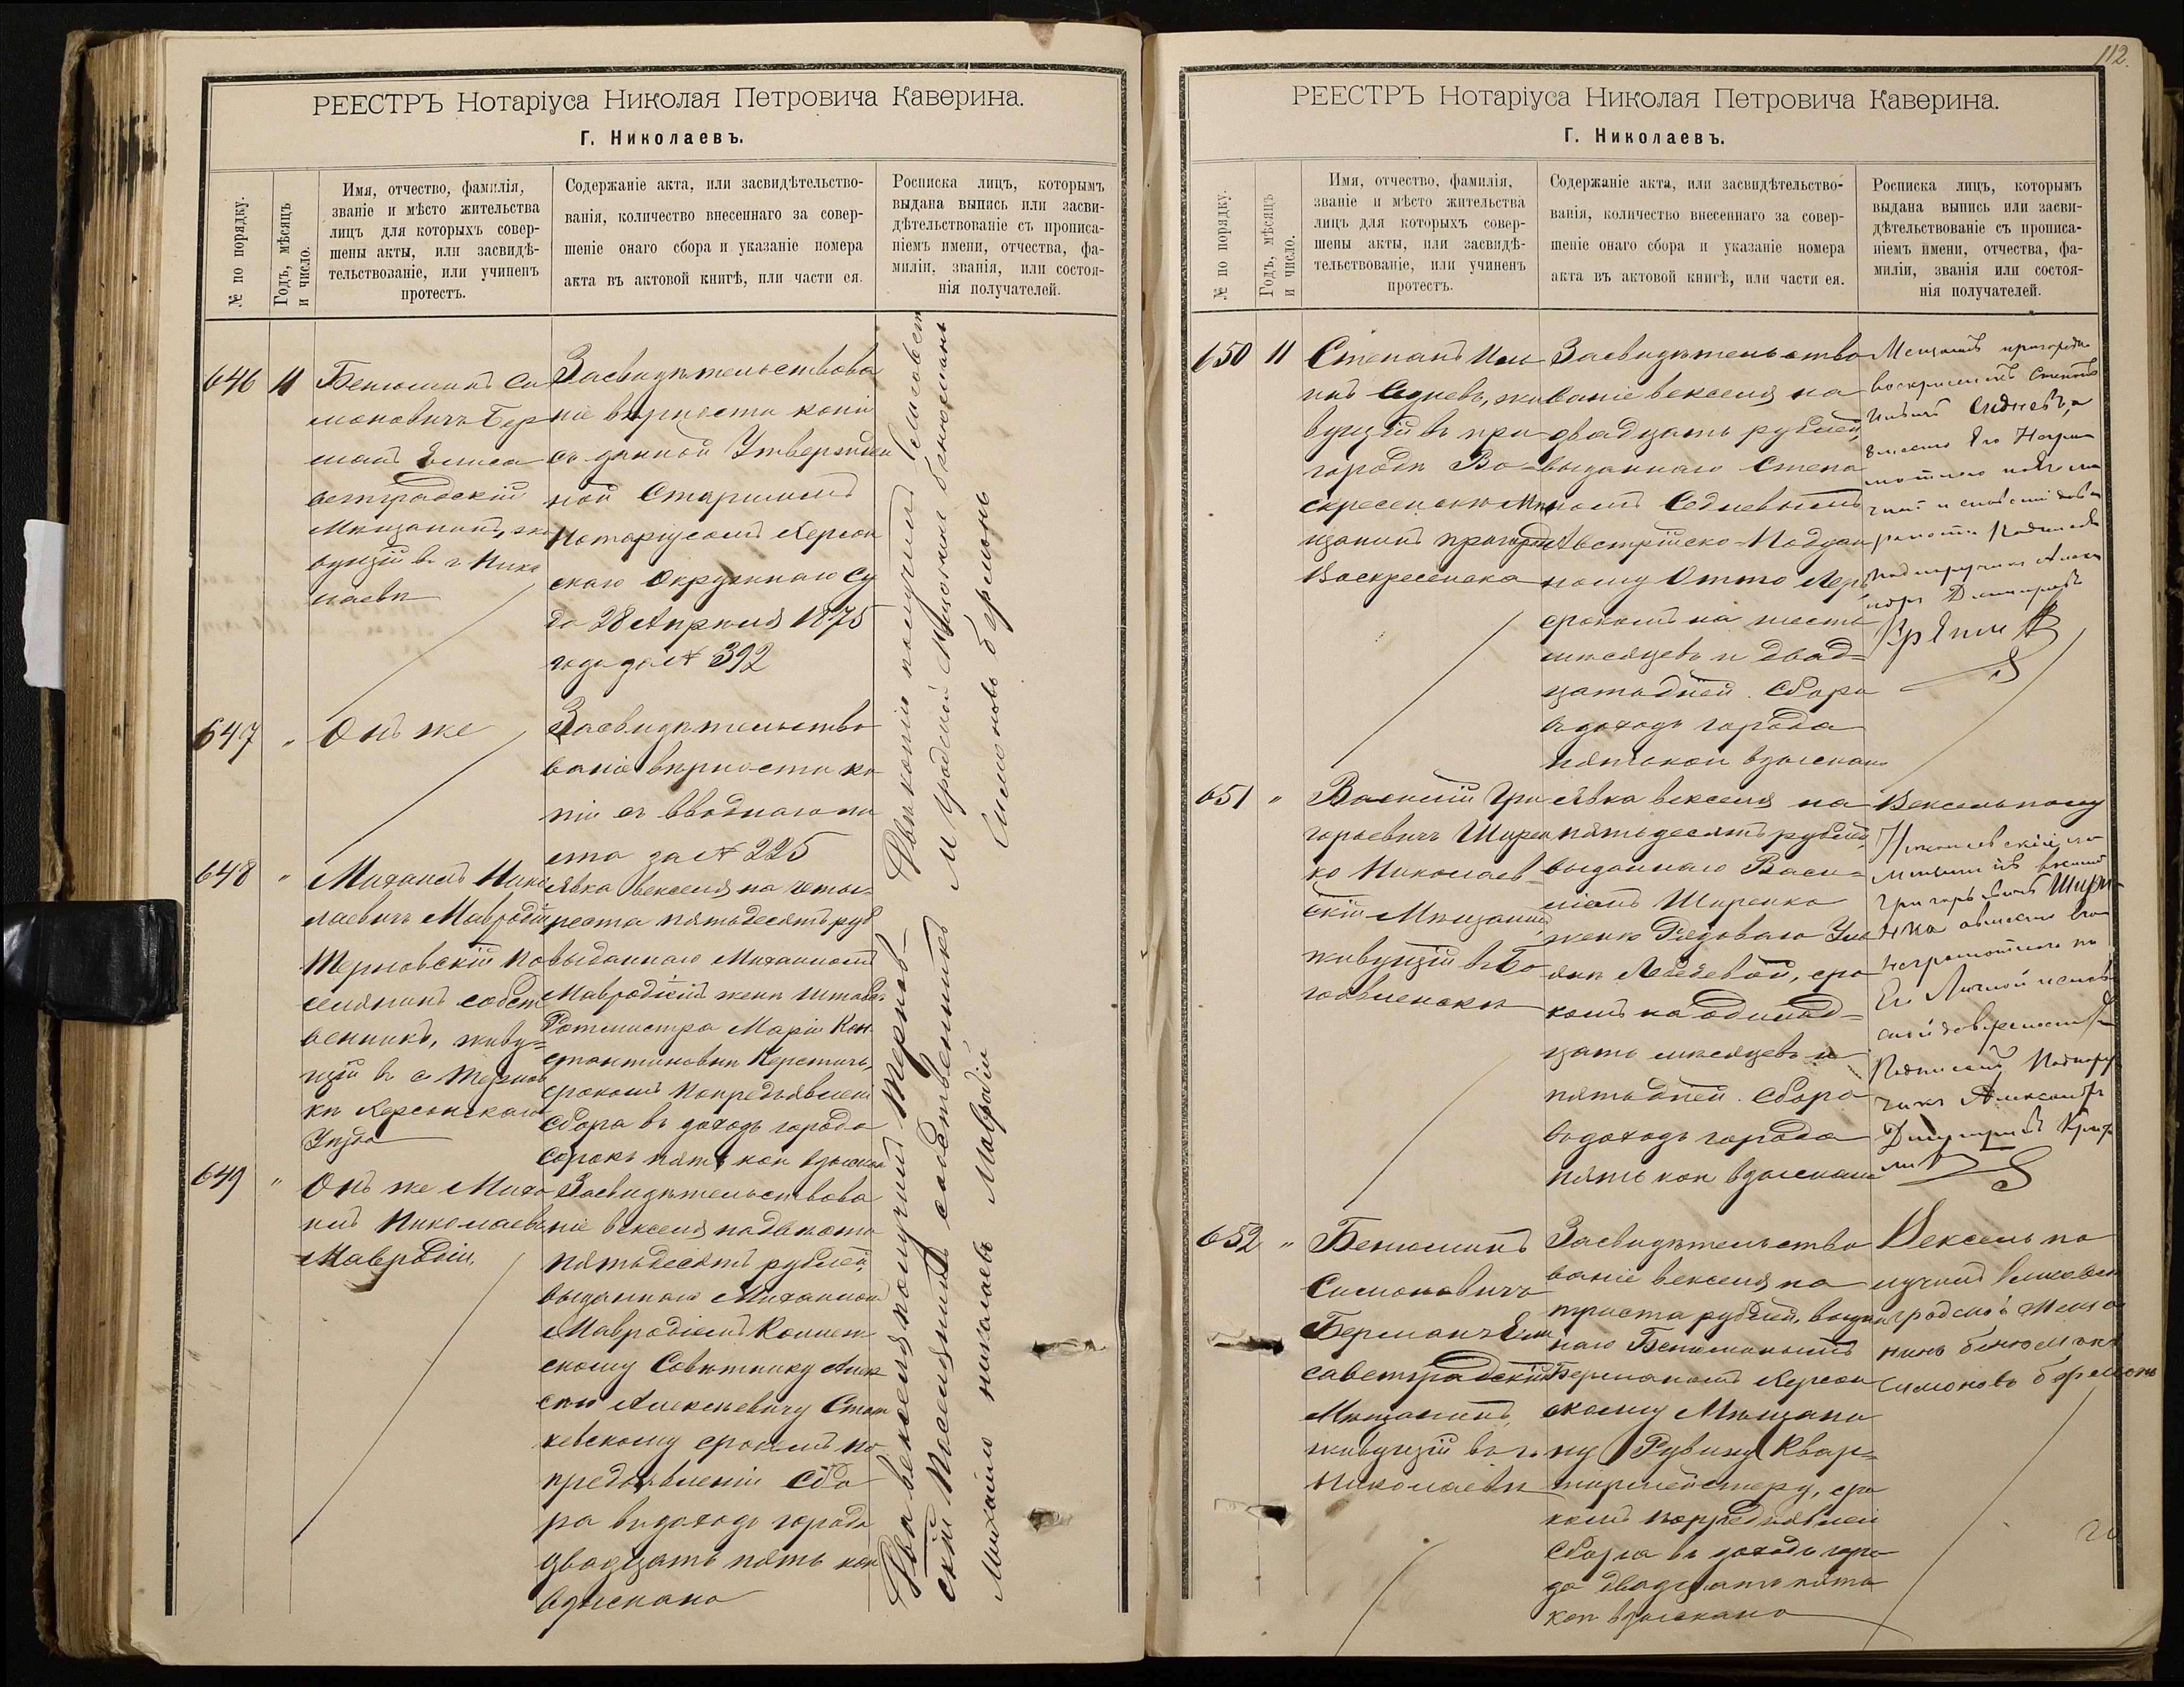 РЕЕСТРЪ Нотаріуса Николая Петровича Каверина.
Г. Николаевъ.
№ по порядку.
Годъ, мѣсяцъ
и число.
Имя, отчество, фамилія,
званіе и мѣсто жительства
лицъ для которыхъ совер-
шены акты, или засвидѣ-
тельствованіе, или учиненъ
протестъ.
Содержаніе акта, или засвидѣтельство-
ванія, количество внесеннаго за совер-
шеніе онаго сбора и указаніе номера
акта въ актовой книгѣ, или части ея.
Росписка лицъ, которымъ
выдана выпись или засви-
дѣтельствованіе съ прописа-
ніемъ имени, отчества, фа-
миліи, званія, или состоя-
нія получателей.
646
11
Бенюминъ Си
моновичъ Бер
манъ Елиса
ветградскій
Мѣщанинъ, жи
вущій въ г. Нико
лаевѣ
Засвидѣтельствова
ніе вѣрности копіи
съ данной Утвержден
ной Старшимъ
Нотаріусомъ Херсон
скаго Окружнаго Су
да 28 Апрѣля 1875
года за № 392
647
"
Онъ же
Засвидѣтельство
ваніе вѣрности ко
піи съ вводнаго ли
ста за № 225
Двѣ копіи получилъ Елисавет
градскій Мѣщанинъ Бенюминъ
Симоновъ Берманъ
648
"
Михаилъ Нико
лаевичъ Мавродій
Терновскій По
селянинъ собст
венникъ, живу=
щій въ с. Тернов
кѣ Херсонскаго
Уѣзда
Явка векселя на четы=
реста пятьдесятъ руб
выданнаго Михаиломъ
Мавродіемъ женѣ Штабъ
Ротмистра Маріи Кон
стантиновнѣ Керстичъ,
срокомъ по предъявленіи
Сбора въ доходъ города
сорокъ пять коп взыскан
649
"
Онъ же Миха
илъ Николаевъ
Мавродій,
Засвидѣтельствова
ніе векселя на двѣсти
пятьдесятъ рублей,
выданнаго Михаиломъ
Мавродіемъ Коллеж
скому Совѣтнику Алек
сѣю Алексѣевичу Стат
кевскому срокомъ по
предъявленіи Сбо
ра въ доходъ города
двадцать пять коп
взыскано
Два векселя получилъ Тернов-
скій Поселянинъ собственникъ
Михайло Николаевъ Мавродій
112.
РЕЕСТРЪ Нотаріуса Николая Петровича Каверина.
Г. Николаевъ.
№ по порядку.
Годъ, мѣсяцъ
и число.
Имя, отчество, фамилія,
званіе и мѣсто жительства
лицъ для которыхъ совер-
шены акты, или засвидѣ-
тельствованіе, или учиненъ
протестъ.
Содержаніе акта, или засвидѣтельство-
ванія, количество внесеннаго за совер-
шеніе онаго сбора и указаніе номера
акта въ актовой книгѣ, или части ея.
Росписка лицъ, которымъ
выдана выпись или засви-
дѣтельствованіе съ прописа-
ніемъ имени, отчества, фа-
миліи, званія или состоя-
нія получателей.
650
11
Степанъ
Седневъ, жи
вущій въ при
городѣ Во-
скресенскѣ Мѣ
щанинъ пригорода
Воскресенска
Засвидѣтельство
ваніе векселя на
двадцать рублей,
выданнаго Степа
номъ Седневымъ
Австрійско-Поддан
ному Отто
срокомъ на шесть
мѣсяцевъ и двад=
цать дней. Сбора
въ доходъ города
пять коп взыскано
Мещанинъ пригорода
Воскресенскъ Степанъ
Седневъ, а
вместо его Негра
мотнаго
Подписалъ
Подпоручикъ Алекса
ндръ Дмитріевъ
651
"
Василій Гри
горьевичъ Ширен
ко Николаев=
скій Мѣщанинъ
живущій въ Бо
гоявленскѣ
Явка векселя на
пятьдесятъ рублей,
выданнаго Васи=
ліемъ Ширенко
женѣ Рядоваго Уль
янѣ Лебедевой, сро
комъ на одинад=
цать мѣсяцевъ и
пять дней. Сбора
въ доходъ города
пять коп взыскано
Вексель полу
Николаевскій
мещанинъ Василій
Григорьевичъ Ширен
ко а вместо его
неграмотнаго по
Его Личной
Подписалъ Подпору
чикъ Александръ
Дмитріевъ
652
"
Бенюминъ
Симоновичъ
Берманъ Ели
саветградскій
Мѣщанинъ,
живущій въ г.
Николаевѣ
Засвидѣтельство
ваніе векселя, на
триста рублей, выдан
наго Бенюминомъ
Берманомъ Херсон
скому Мѣщани
ну Рувину Квар=
тирмейстеру, сро
комъ по предъявлен
Сбора въ доходъ горо
да двадцать пять
коп взыскано
Вексель по
лучилъ Елисавет
градской Меща
нинъ Бенюминъ
Симоновъ Берманъ